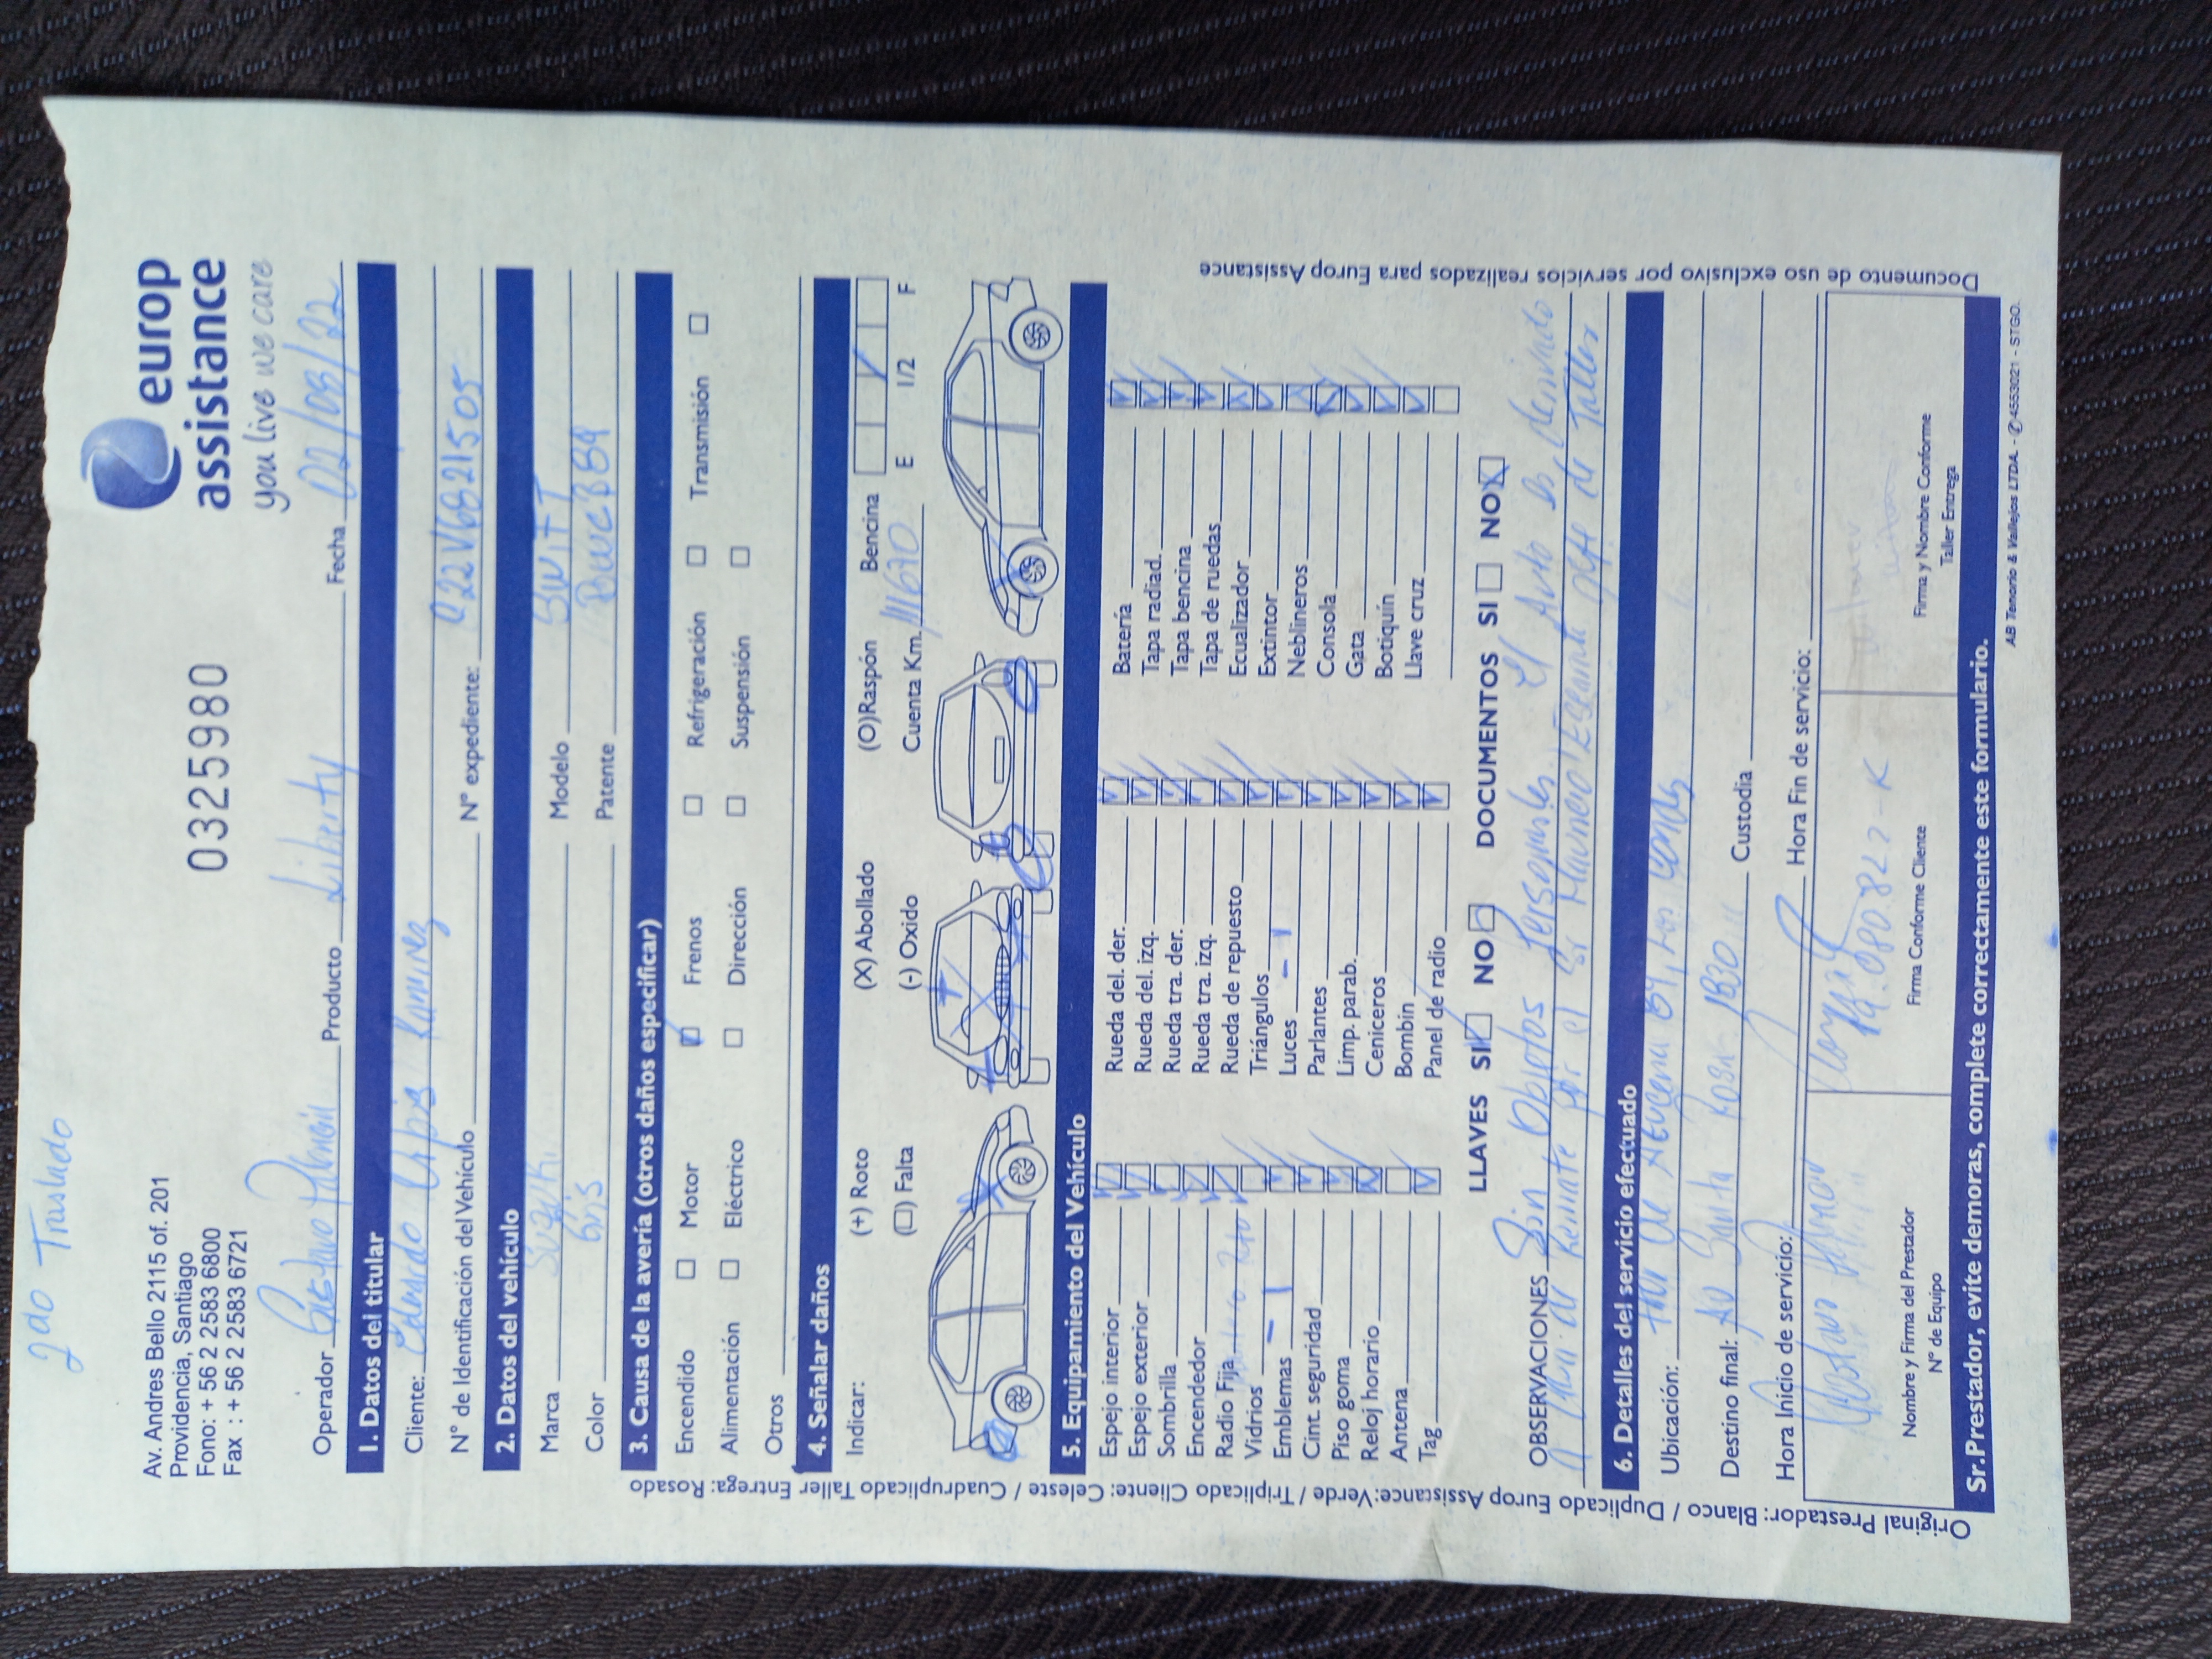 2do Traslado
Av. Andres Bello 2115 of. 201
Providencia, Santiago
Fono: + 56 2 2583 6800
Fax : + 56 2 2583 6721
0325980
europ
assistance
you live we care
Operador Gustavo Producto Liberty Fecha 02/08/22
1. Datos del titular
Cliente: Eduardo Ramirez
N° de Identificación del Vehículo N° expediente: 422V6821505
2. Datos del vehículo
Marca Suzuki Modelo Swift
Color Gris Patente
3. Causa de la avería (otros daños especificar)
Encendido Motor Frenos Refrigeración Transmisión
Alimentación Eléctrico Dirección Suspensión
Otros
4. Señalar daños
Indicar: (+) Roto (X) Abollado (O)Raspón Bencina
(□) Falta (-) Oxido Cuenta Km. 111670 E 1/2 F
5. Equipamiento del Vehículo
Espejo interior Rueda del. der. Batería
Espejo exterior Rueda del. izq. Tapa radiad.
Sombrilla Rueda tra. der. Tapa bencina
Encendedor Rueda tra. izq. Tapa de ruedas
Radio Fija Rueda de repuesto Ecualizador
Vidrios Triángulos Extintor
Emblemas Luces Neblineros
Cint. seguridad Parlantes Consola
Piso goma Limp. parab. Gata
Reloj horario Ceniceros Botiquín
Antena Bombin Llave cruz
Tag Panel de radio
LLAVES SI NO DOCUMENTOS SI NO
OBSERVACIONES Sin Objetos Personales. El Auto es derivado
a Remate por el Sr Jefe de Taller
6. Detalles del servicio efectuado
Ubicación:
Destino final: Av Santa Rosa 1830 Custodia
Hora Inicio de servicio: Hora Fin de servicio:
Nombre y Firma del Prestador
N° de Equipo
Firma Conforme Cliente
Firma y Nombre Conforme
Taller Entrega
Sr.Prestador, evite demoras, complete correctamente este formulario.
AB Tenorio & Vallejos LTDA. - ✆4553021 - STGO.
Original Prestador: Blanco / Duplicado Europ Assistance:Verde / Triplicado Cliente: Celeste / Cuadruplicado Taller Entrega: Rosado
Documento de uso exclusivo por servicios realizados para Europ Assistance